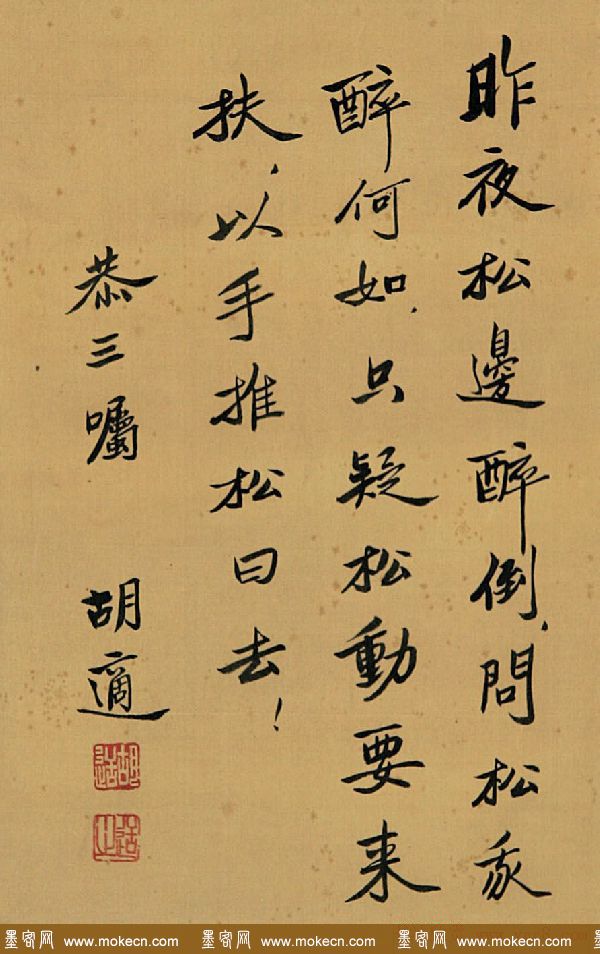 昨夜松邊醉倒，問松我
醉何如，只疑松動要来
扶，以手推松曰去！
恭三囑
胡適
胡適
適之
墨客网 www.mokecn.com 墨客网 www.mokecn.com 墨客网 www.mokecn.com